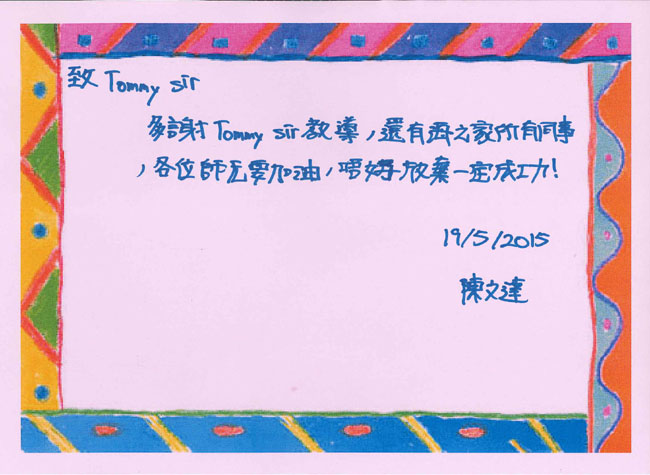 致 Tommy sir
多謝 Tommy sir 教導，還有再之家所有同事
，各位師兄要加油，唔好放棄一定成功！
19/5/2015
陳文達